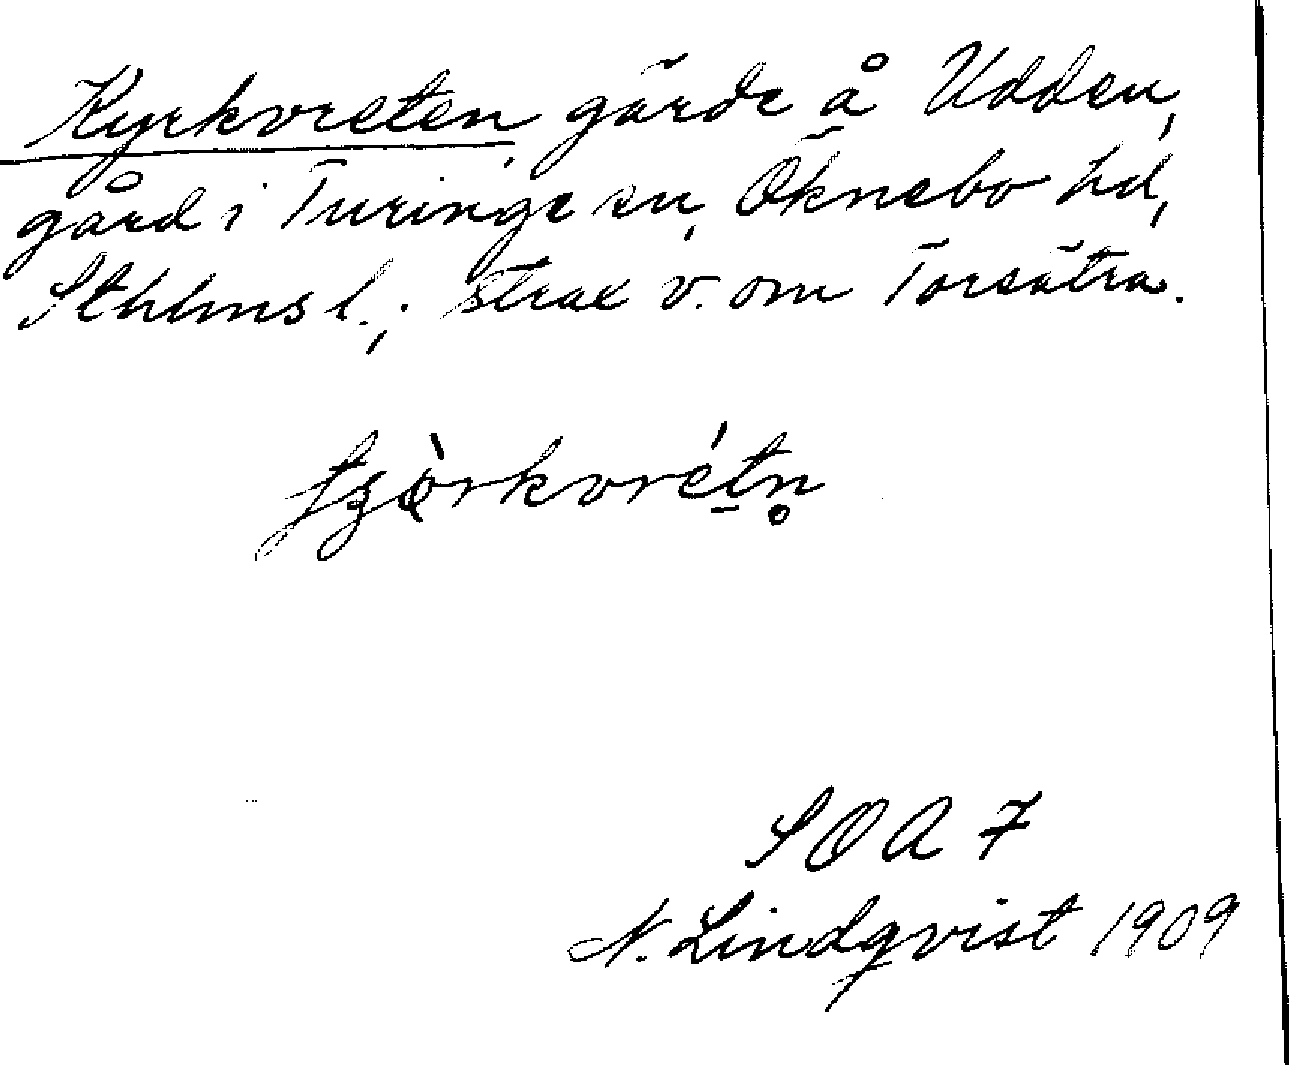 Kyrkvreten, gärde å Udden,
gård i Turinge sn, Öknebo hd,
Sthlms l.; strax v. om Torsätra.
S O A 7
N. Lindqvist 1909